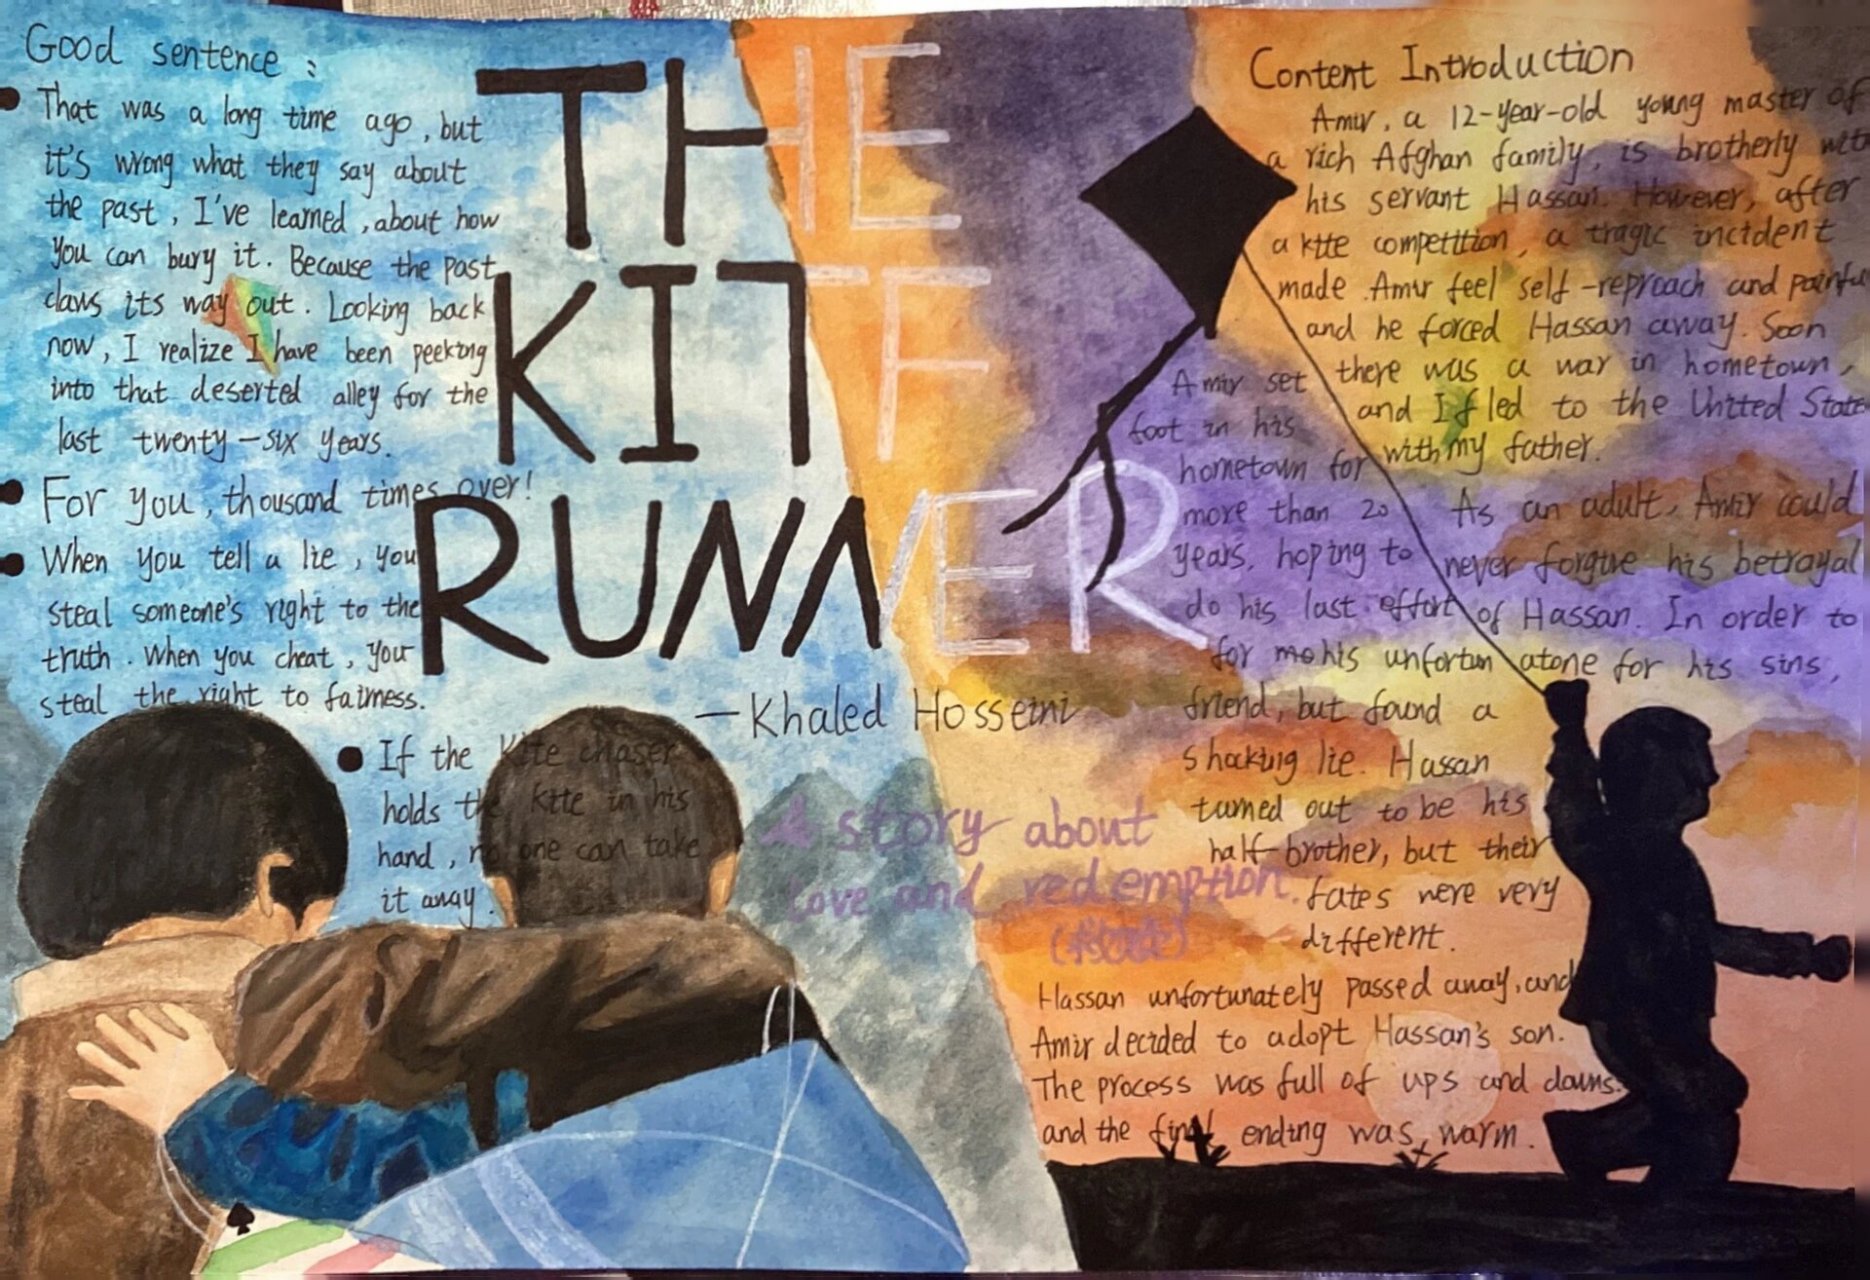 Good sentence :
That was a long time ago, but
it's wrong what they say about
the past, I've learned, about how
you can bury it. Because the past
claws its way out. Looking back
now, I realize I have been peeking
into that deserted alley for the
last twenty-six years.
For you, thousand times over!
When you tell a lie, you
steal someone's right to the
truth. When you cheat, your
steal the right to fairness.
If the Kite chaser
holds the kite in his
hand, no one can take
it away.
THE
KITE
RUNNER
—Khaled Hosseini
A story about
love and redemption.
Content Introduction
Amir, a 12-year-old young master of
a rich Afghan family, is brotherly with
his servant Hassan. However, after
a kite competition, a tragic incident
made Amir feel self-reproach and painful
and he forced Hassan away. Soon
there was a war in hometown,
and I fled to the United State
with my father.
As an adult, Amir could
never forgive his betrayal
of Hassan. In order to
atone for his sins,
Amir set
foot in his
hometown for
more than 20
years, hoping to
do his last effort
for his unfortun
friend, but found a
shocking lie. Hassan
turned out to be his
half-brother, but their
fates were very
different.
Hassan unfortunately passed away, and
Amir decided to adopt Hassan's son.
The process was full of ups and downs.
and the final ending was warm.